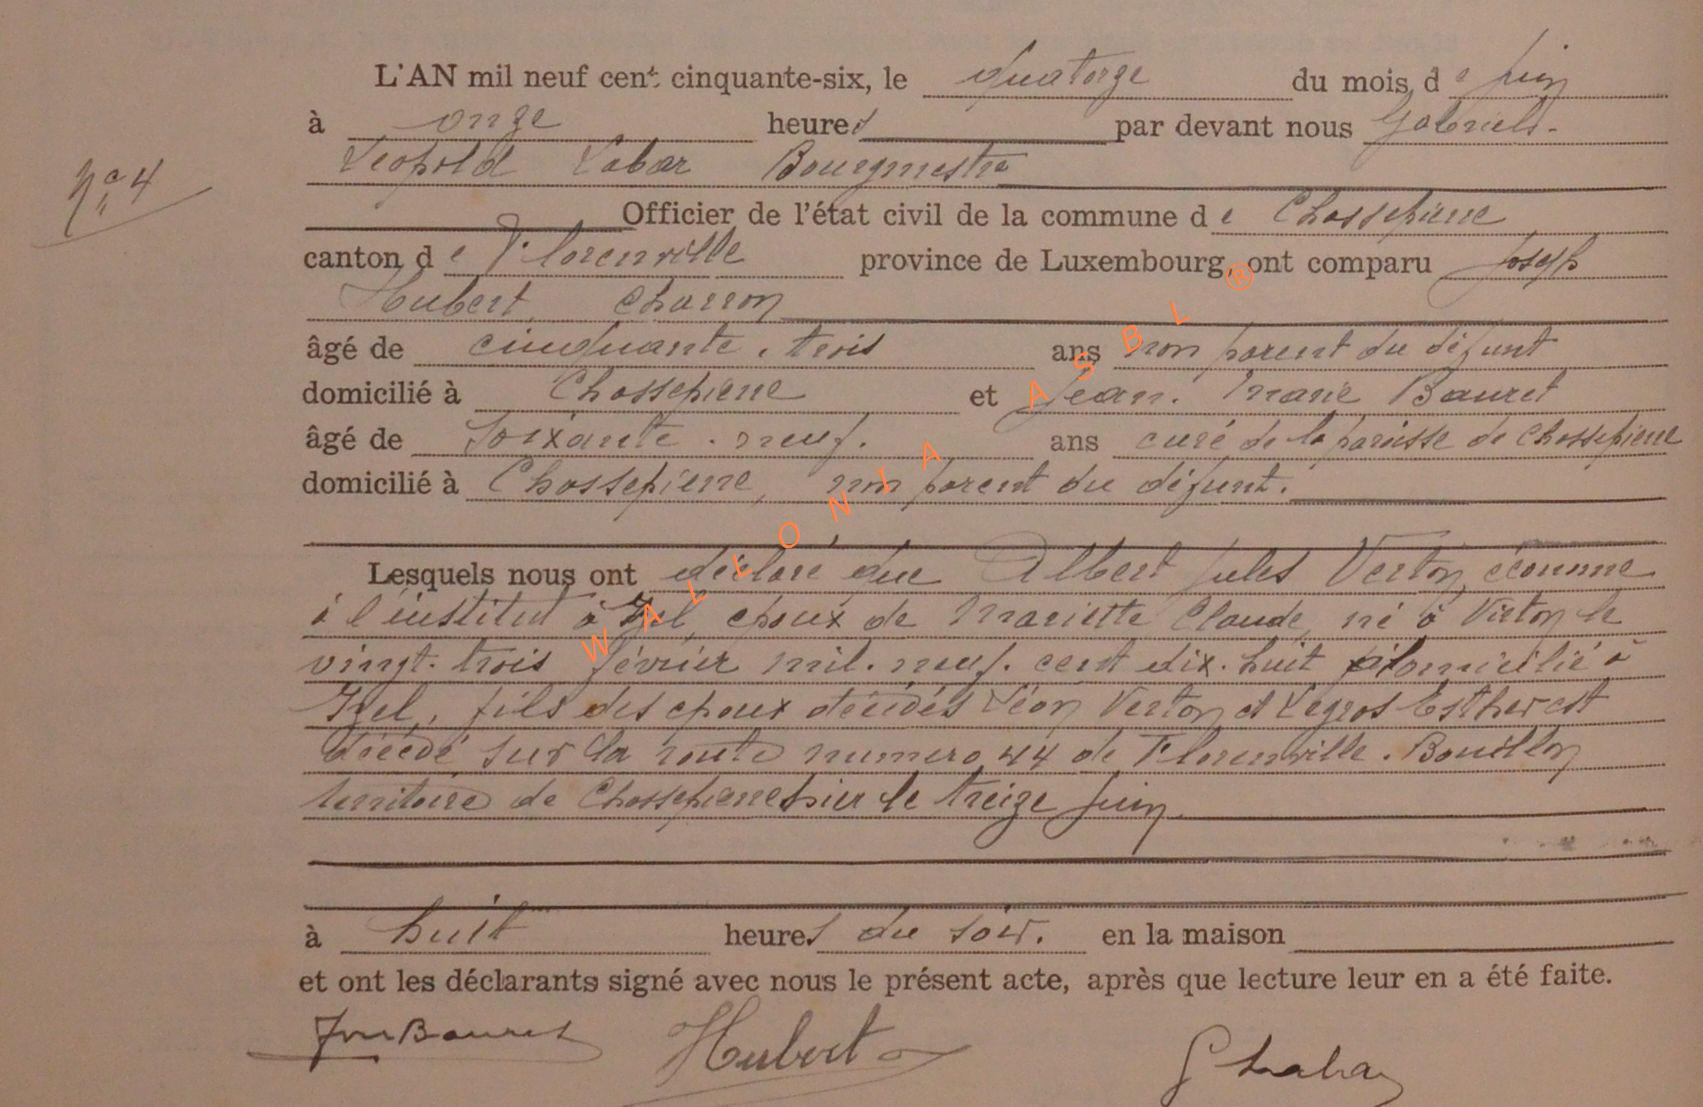 L'AN mil neuf cent cinquante-six, le quatorze du mois de juin
à onze heures par devant nous Gabriels-
Nº 4
Léopold Labar Bourgmestre
Officier de l'état civil de la commune de Chassepierre
canton de Florenville province de Luxembourg, ont comparu Joseph
Hubert, Charron
âgé de cinquante-trois ans non parent du défunt
domicilié à Chassepierre et Jean-Marie Bauret
âgé de Soixante-neuf. ans curé de la paroisse de Chassepierre
domicilié à Chassepierre, non parent du défunt.
Lesquels nous ont déclaré que Albert Jules Verton, économe
à l'institut à Izel, époux de Mariette Claude, né à Virton le
vingt-trois février mil-neuf-cent dix-huit domicilié à
Izel, fils des époux décédés Léon Verton et Legros Esther est
décédé sur la route numéro 44 de Florenville-Bouillon
territoire de Chassepierre hier le treize juin
à huit heures du soir. en la maison
et ont les déclarants signé avec nous le présent acte, après que lecture leur en a été faite.
Bauret Hubert G Labar
WALLONIA ASBL ®